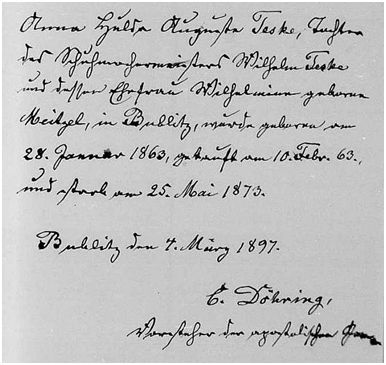 Anna Hulda Auguste Teske, Tochter
des Schuhmachermeisters Wilhelm Teske
und dessen Ehefrau Wilhelmine geborene
Meitzel, in Bublitz, wurde geboren am
28. Januar 1863, getauft am 10. Febr. 63.,
und starb am 25. Mai 1873.
Bublitz den 4. März 1897.
C. Döhring,
Vorsteher der apostolischen